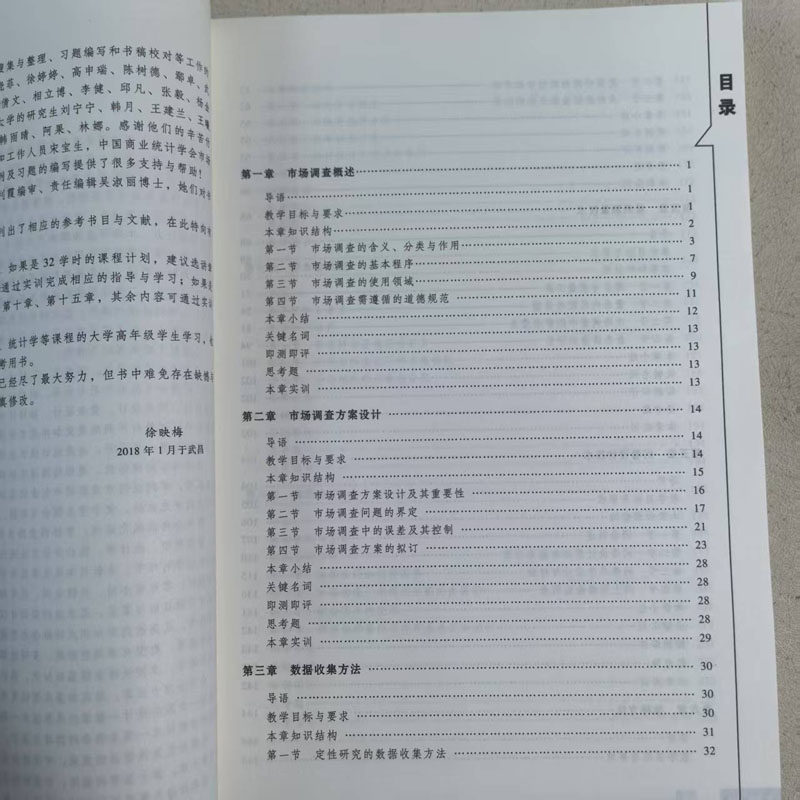 集与整理、习题编写和书稿校对等工作的
菲、徐婷婷、高申瑞、陈树德、鄢卓、
倩文、相立博、李健、邱凡、张毅、杨
大学的研究生刘宁宁、韩月、王建兰、王
韩雨晴、阿果、林娜。感谢他们的辛苦
和工作人员宋宝生，中国商业统计学会市场
例及习题的编写提供了很多支持与帮助！
刘霞编审、责任编辑吴淑丽博士，她们对书
列出了相应的参考书目与文献，在此特向
如果是 32 学时的课程计划，建议选讲
通过实训完成相应的指导与学习；如果是
第十章、第十五章，其余内容可通过实训
统计学等课程的大学高年级学生学习，也
考用书。
已经尽了最大努力，但书中难免存在缺憾
真修改。
徐映梅
2018 年 1 月于武昌
目录
第一章 市场调查概述 1
导语 1
教学目标与要求 1
本章知识结构 2
第一节 市场调查的含义、分类与作用 3
第二节 市场调查的基本程序 7
第三节 市场调查的使用领域 9
第四节 市场调查需遵循的道德规范 11
本章小结 12
关键名词 13
即测即评 13
思考题 13
本章实训 13
第二章 市场调查方案设计 14
导语 14
教学目标与要求 14
本章知识结构 15
第一节 市场调查方案设计及其重要性 16
第二节 市场调查问题的界定 17
第三节 市场调查中的误差及其控制 21
第四节 市场调查方案的拟订 23
本章小结 28
关键名词 28
即测即评 28
思考题 28
本章实训 29
第三章 数据收集方法 30
导语 30
教学目标与要求 30
本章知识结构 31
第一节 定性研究的数据收集方法 32